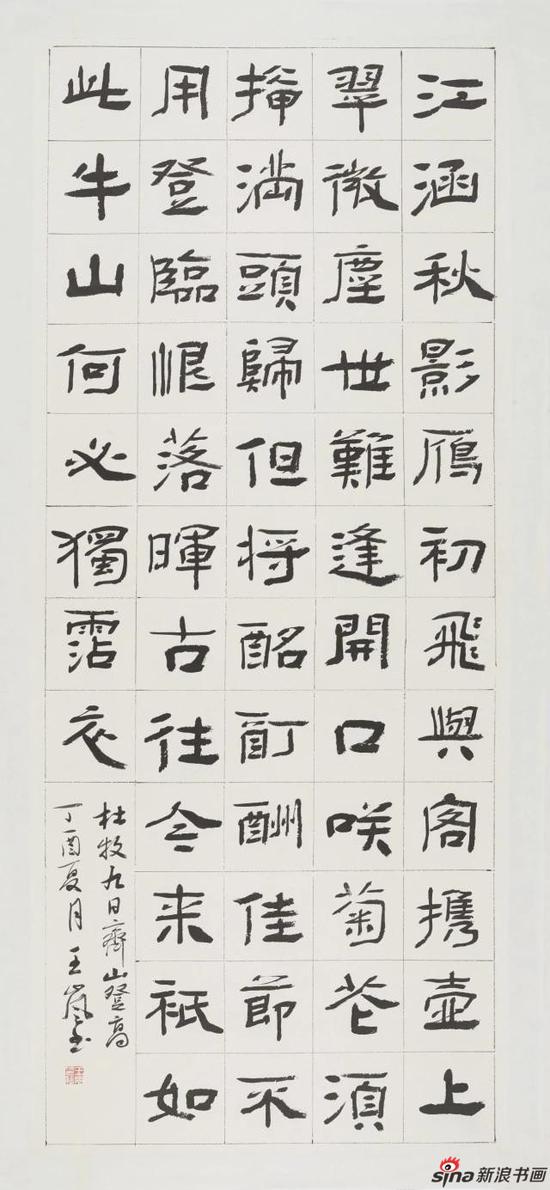 江涵秋影鴈初飛與客携壺上
翠微塵世難逢開口咲菊花須
插滿頭歸但将酩酊酬佳節不
用登臨恨落暉古往今来衹如
此牛山何必獨霑衣
杜牧九日齊山登高
丁酉夏月王嵐书
sina新浪书画